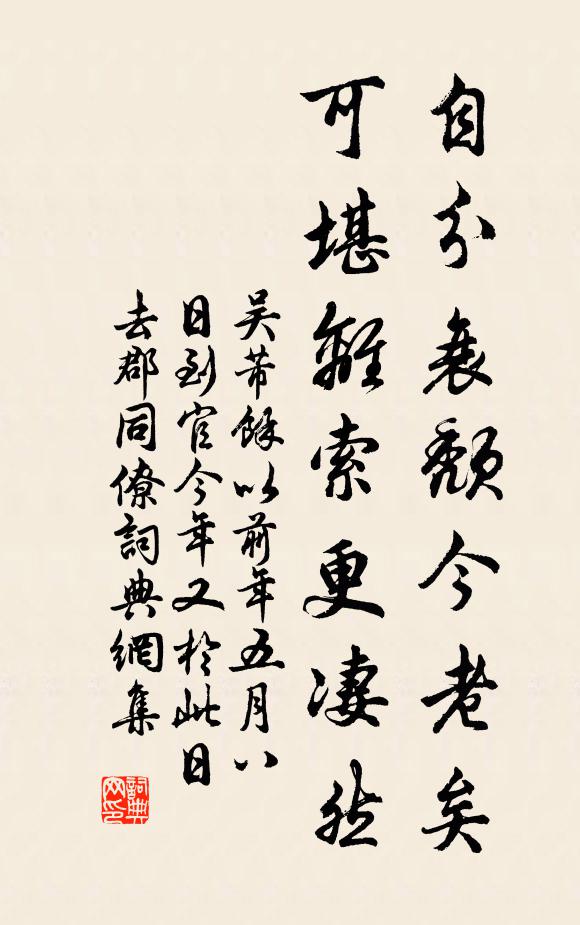 自分衰頹今老矣
可堪離索更凄然
吳芾餘以前年五月八
日到官今年又於此日
去郡同僚詞典網集
詞典
网印